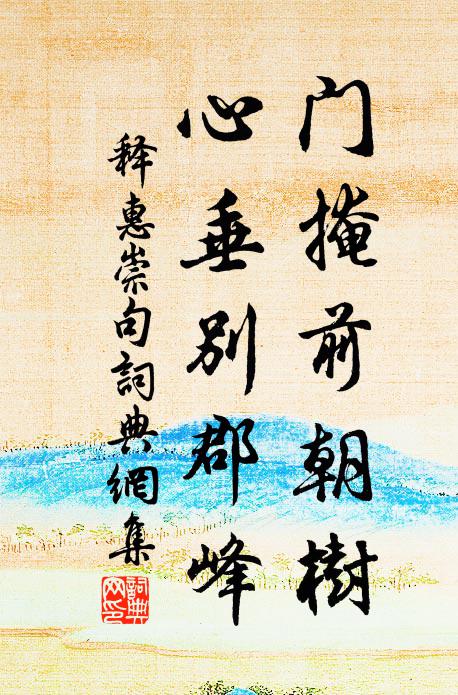 门掩前朝树
心垂别郡峰
释惠崇句詞典網集
詞典
网印